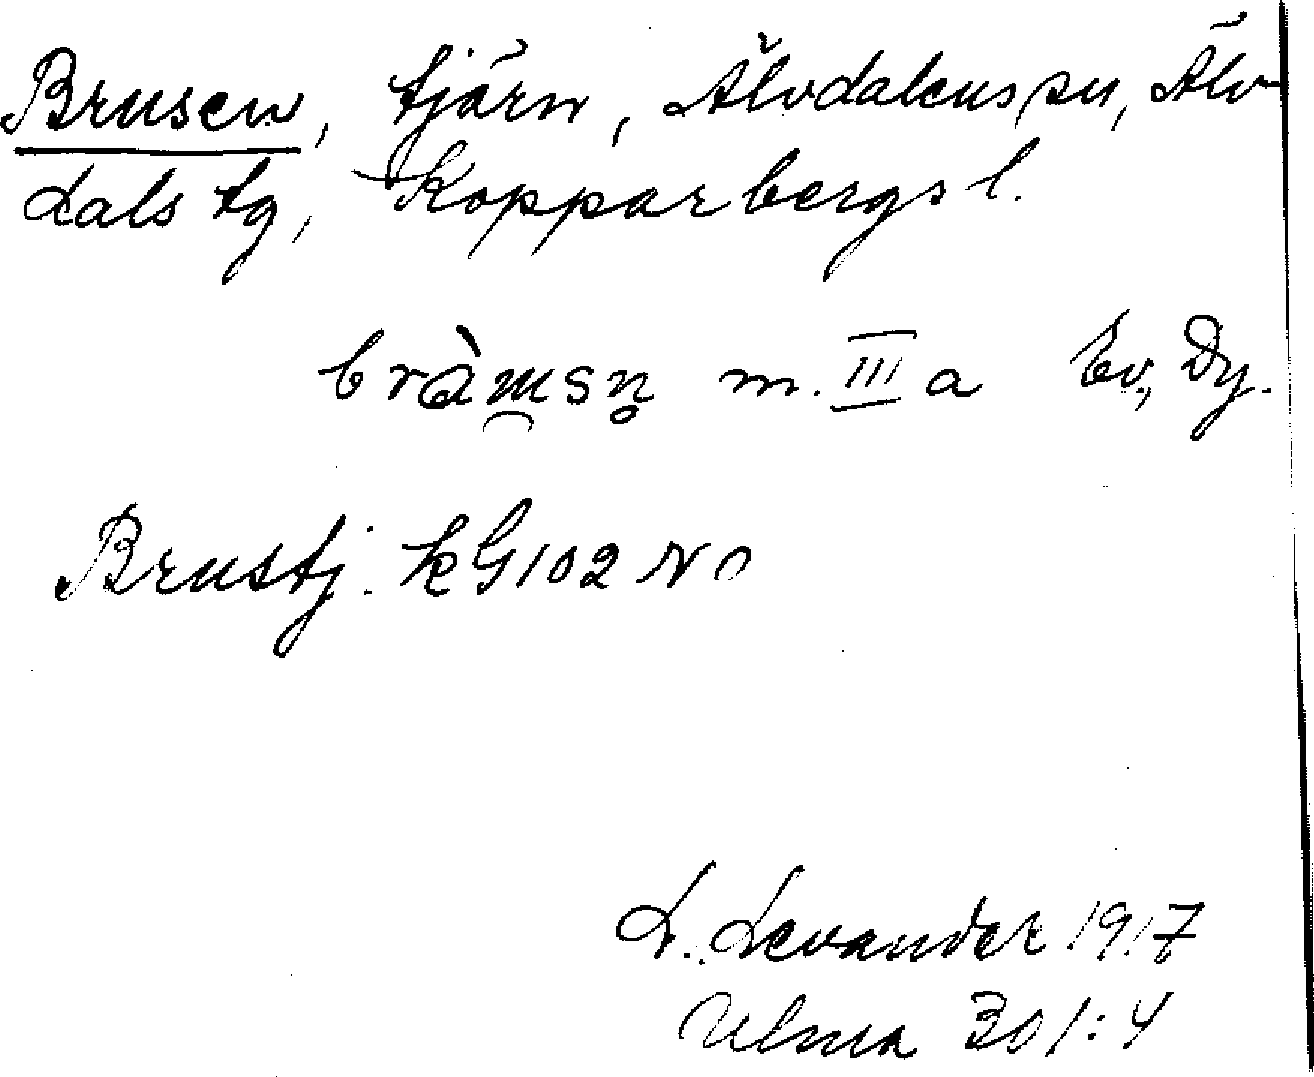 Brusen, tjärn, Älvdalens sn, Älv-
dals tg, Kopparbergs l.
bràu̯sn̥ m. III a Ev., Dy.
Brustj. kG 102 NO
L. Levander 1917
Ulma 301:4